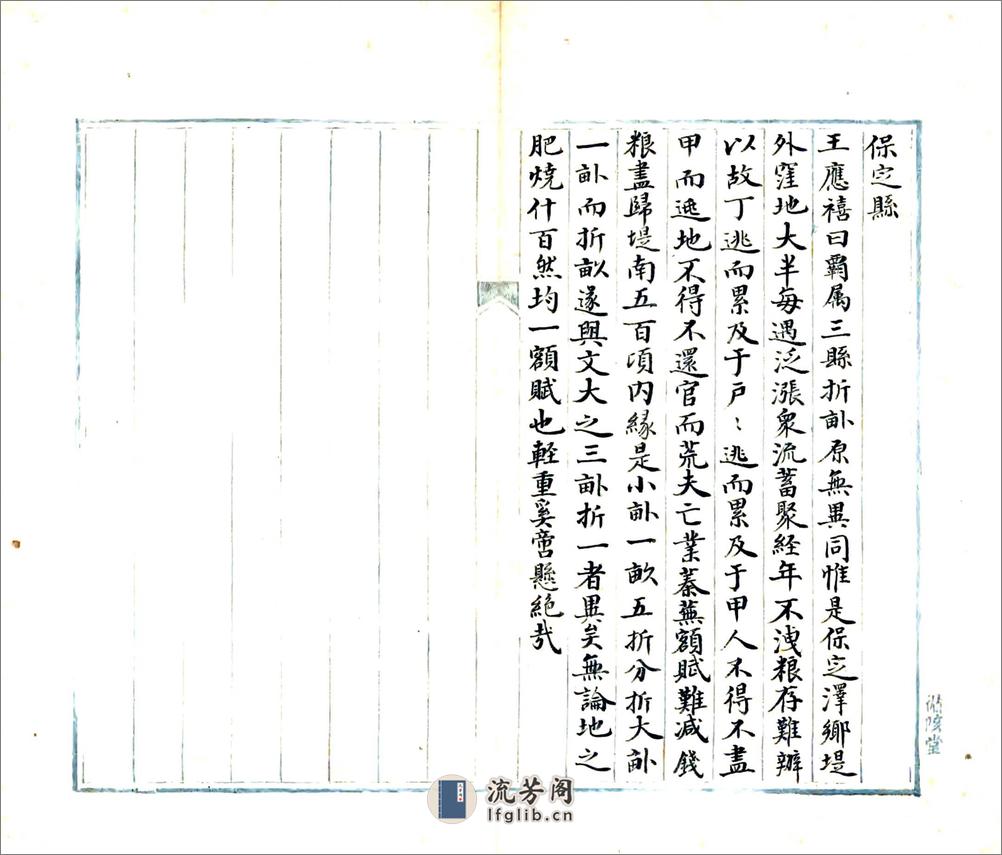 保定縣
王應禧曰霸属三縣折畝原無異同惟是保定澤鄉堤
外窪地大半每遇泛漲衆流蓄聚経年不洩粮存難辦
以故丁逃而累及于戸〻逃而累及于甲人不得不盡
甲而逃地不得不還官而荒夫亡業蓁蕪額賦難减錢
粮盡歸堤南五百頃内緣是小畝一畝五折分折大畝
一畝而折畝以遂與文大之三畝折一者異矣無論地之
肥燒什百然均一額賦也輕重奚啻懸絶哉
流芳阁
lfglib.cn